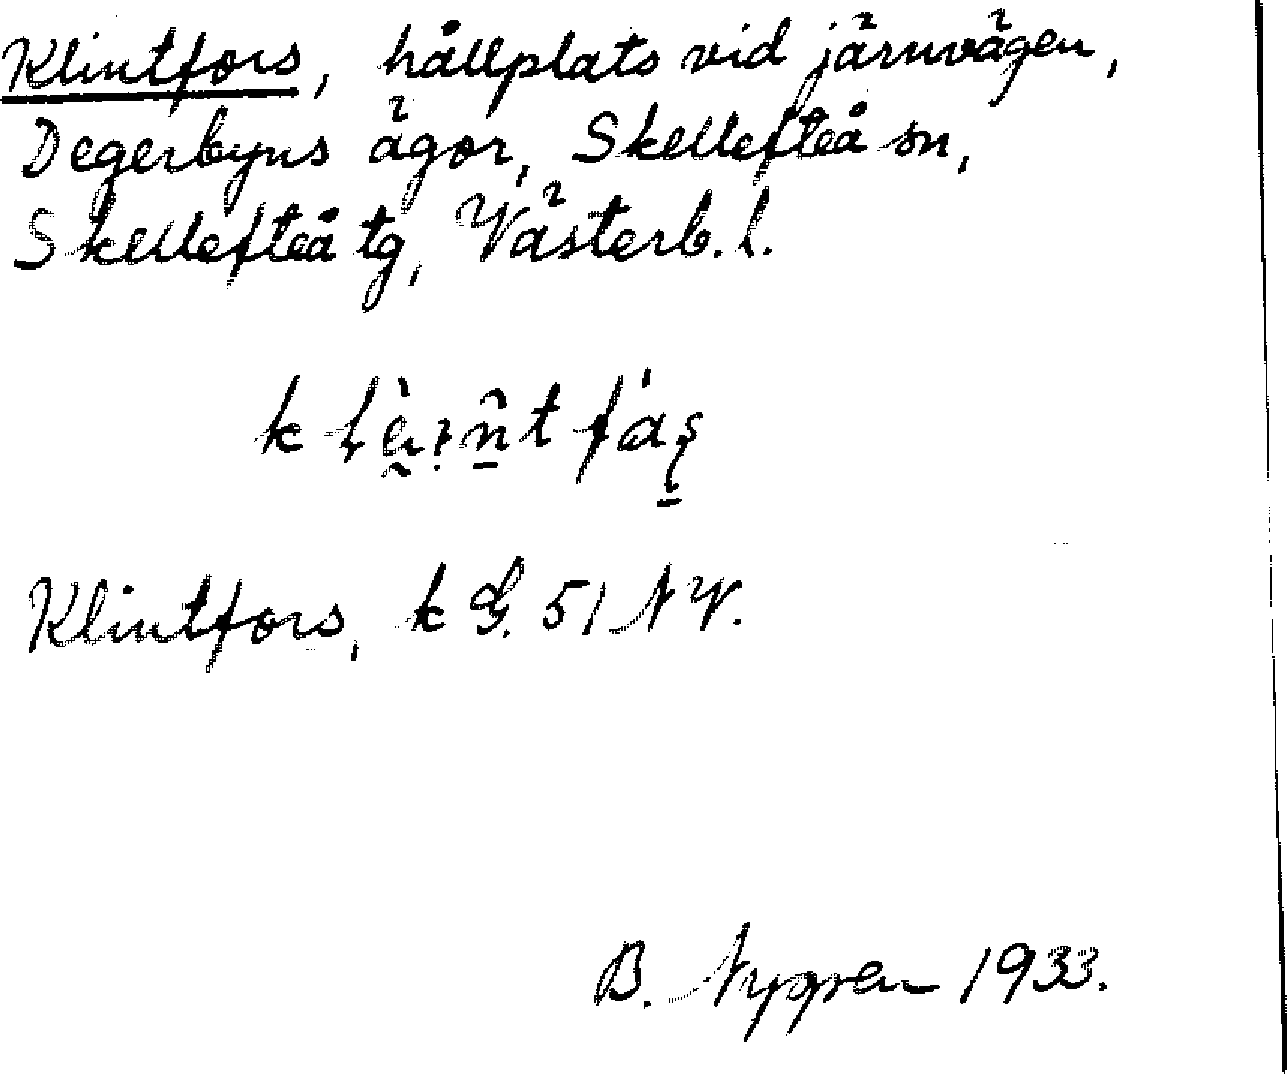 Klintfors, hållplats vid järnvägen,
Degerbyns ägor, Skellefteå sn,
Skellefteå tg, Västerb. l.
Klintfors, k G. 51 NV.
B. Nygren 1933.